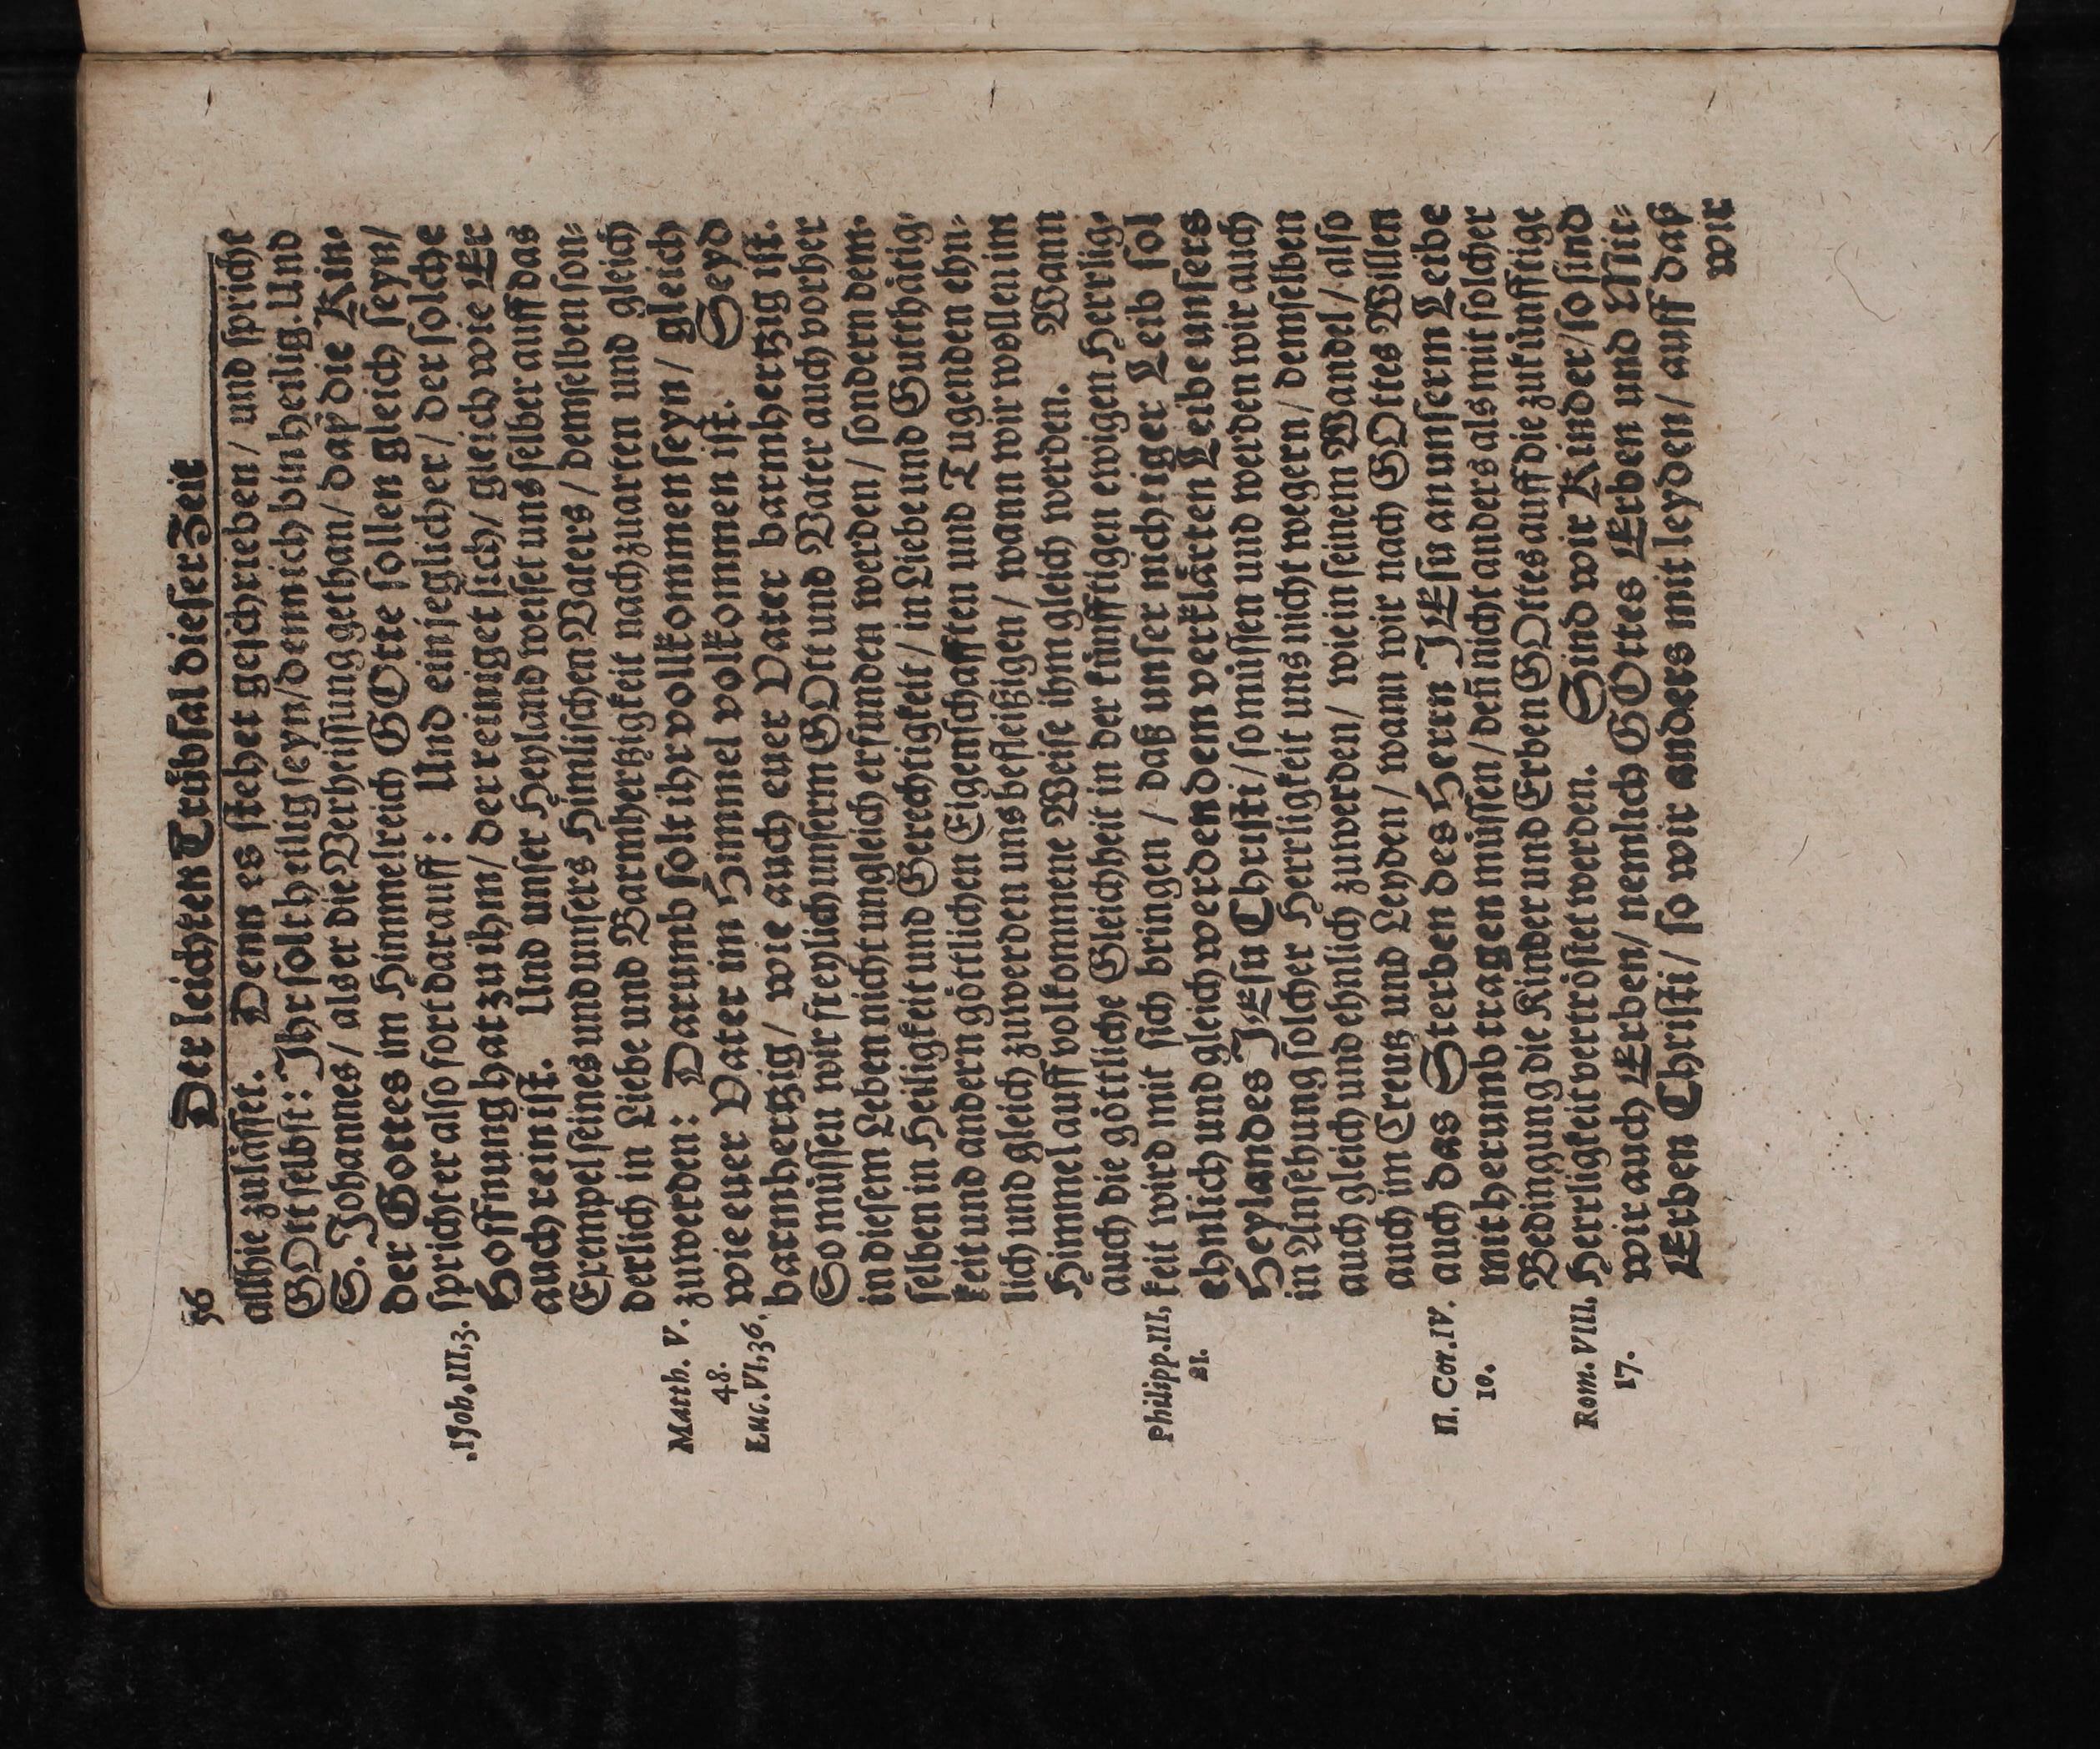 56
Der leichten Trübsal dieser Zeit
allhie zulässet. Denn es stehet geschrieben / und spricht
GOtt selbst: Ihr solt heilig seyn / denn ich bin heilig. Und
S. Johannes / als er die Verheissung gethan / daß die Kin-
der Gottes im Himmelreich GOtte sollen gleich seyn /
spricht er also fort darauff: Und ein jeglicher / der solche
I Joh. III, 3.
Hoffnung hat zu ihm / der reiniget sich / gleich wie Er
auch rein ist. Und unser Heyland weiset uns selber auff das
Exempel seines und unsers Himlischen Vaters / demselben son-
derlich in Liebe und Barmhertzigkeit nachzuarten und gleich
zuwerden: Darumb solt ihr vollkommen seyn / gleich
Matth. V.
48.
wie euer Vater im Himmel volkommen ist. Seyd
Luc. VI, 36.
barmhertzig / wie auch euer Vater barmhertzig ist.
So müssen wir freylich unserm GOtt und Vater auch vorher
in diesem Leben nicht ungleich erfunden werden / sondern dem-
selben in Heiligkeit und Gerechtigkeit / in Liebe und Gutthätig-
keit und andern göttlichen Eigenschafften und Tugenden ehn-
lich und gleich zuwerden uns befleißigen / wann wir wollen im
Himmel auff volkommene Weise ihm gleich werden. Wann
auch die göttliche Gleichheit in der künfftigen ewigen Herrlig-
keit wird mit sich bringen / daß unser nichtiger Leib sol
Philipp. III,
21.
ehnlich und gleich werden dem verklärten Leibe unsers
Heylandes JEsu Christi / so müssen und werden wir auch
in Ansehung solcher Herrligkeit uns nicht wegern / demselben
auch gleich und ehnlich zuwerden / wie in seinem Wandel / also
auch im Creutz und Leyden / wann wir nach GOttes Willen
auch das Sterben des Herrn JEsu an unserm Leibe
II. Cor. IV.
10.
mit herumb tragen müssen / deñ nicht anders als mit solcher
Bedingung die Kinder und Erben GOttes auff die zukünfftige
Herrligkeit vertröstet werden. Sind wir Kinder / so sind
Rom. VIII,
17.
wir auch Erben / nemlich GOttes Erben und Mit-
Erben Christi / so wir anders mit leyden / auff daß
wir